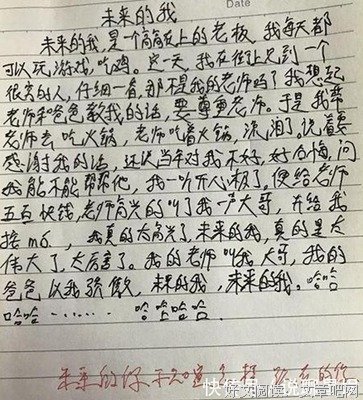 Date
未来的我
未来的我,是一个高高在上的老板,我每天都
可以玩游戏,吃鸡。这一天,我在街上见到一个
很老的人,仔细一看,那不是我的老师吗?我想起
老师和爸爸教我的话,要尊重老师。于是我带
老师去吃火锅,老师吃着火锅,流泪了,说着要
感谢我的话,还说当年对我不好,好后悔,问
我能不能帮帮他,我一听开心极了,便给老师
五百块钱,老师高兴的叫了我一声大哥,并给我
我真的太高兴了,未来的我,真的是太
伟大了,太厉害了。我的老师叫我大哥,我的
爸爸以我骄傲,未来的我,未来的我。哈哈
哈哈…… 哈哈哈哈.
未来的你
快
好文阅读文章吧网